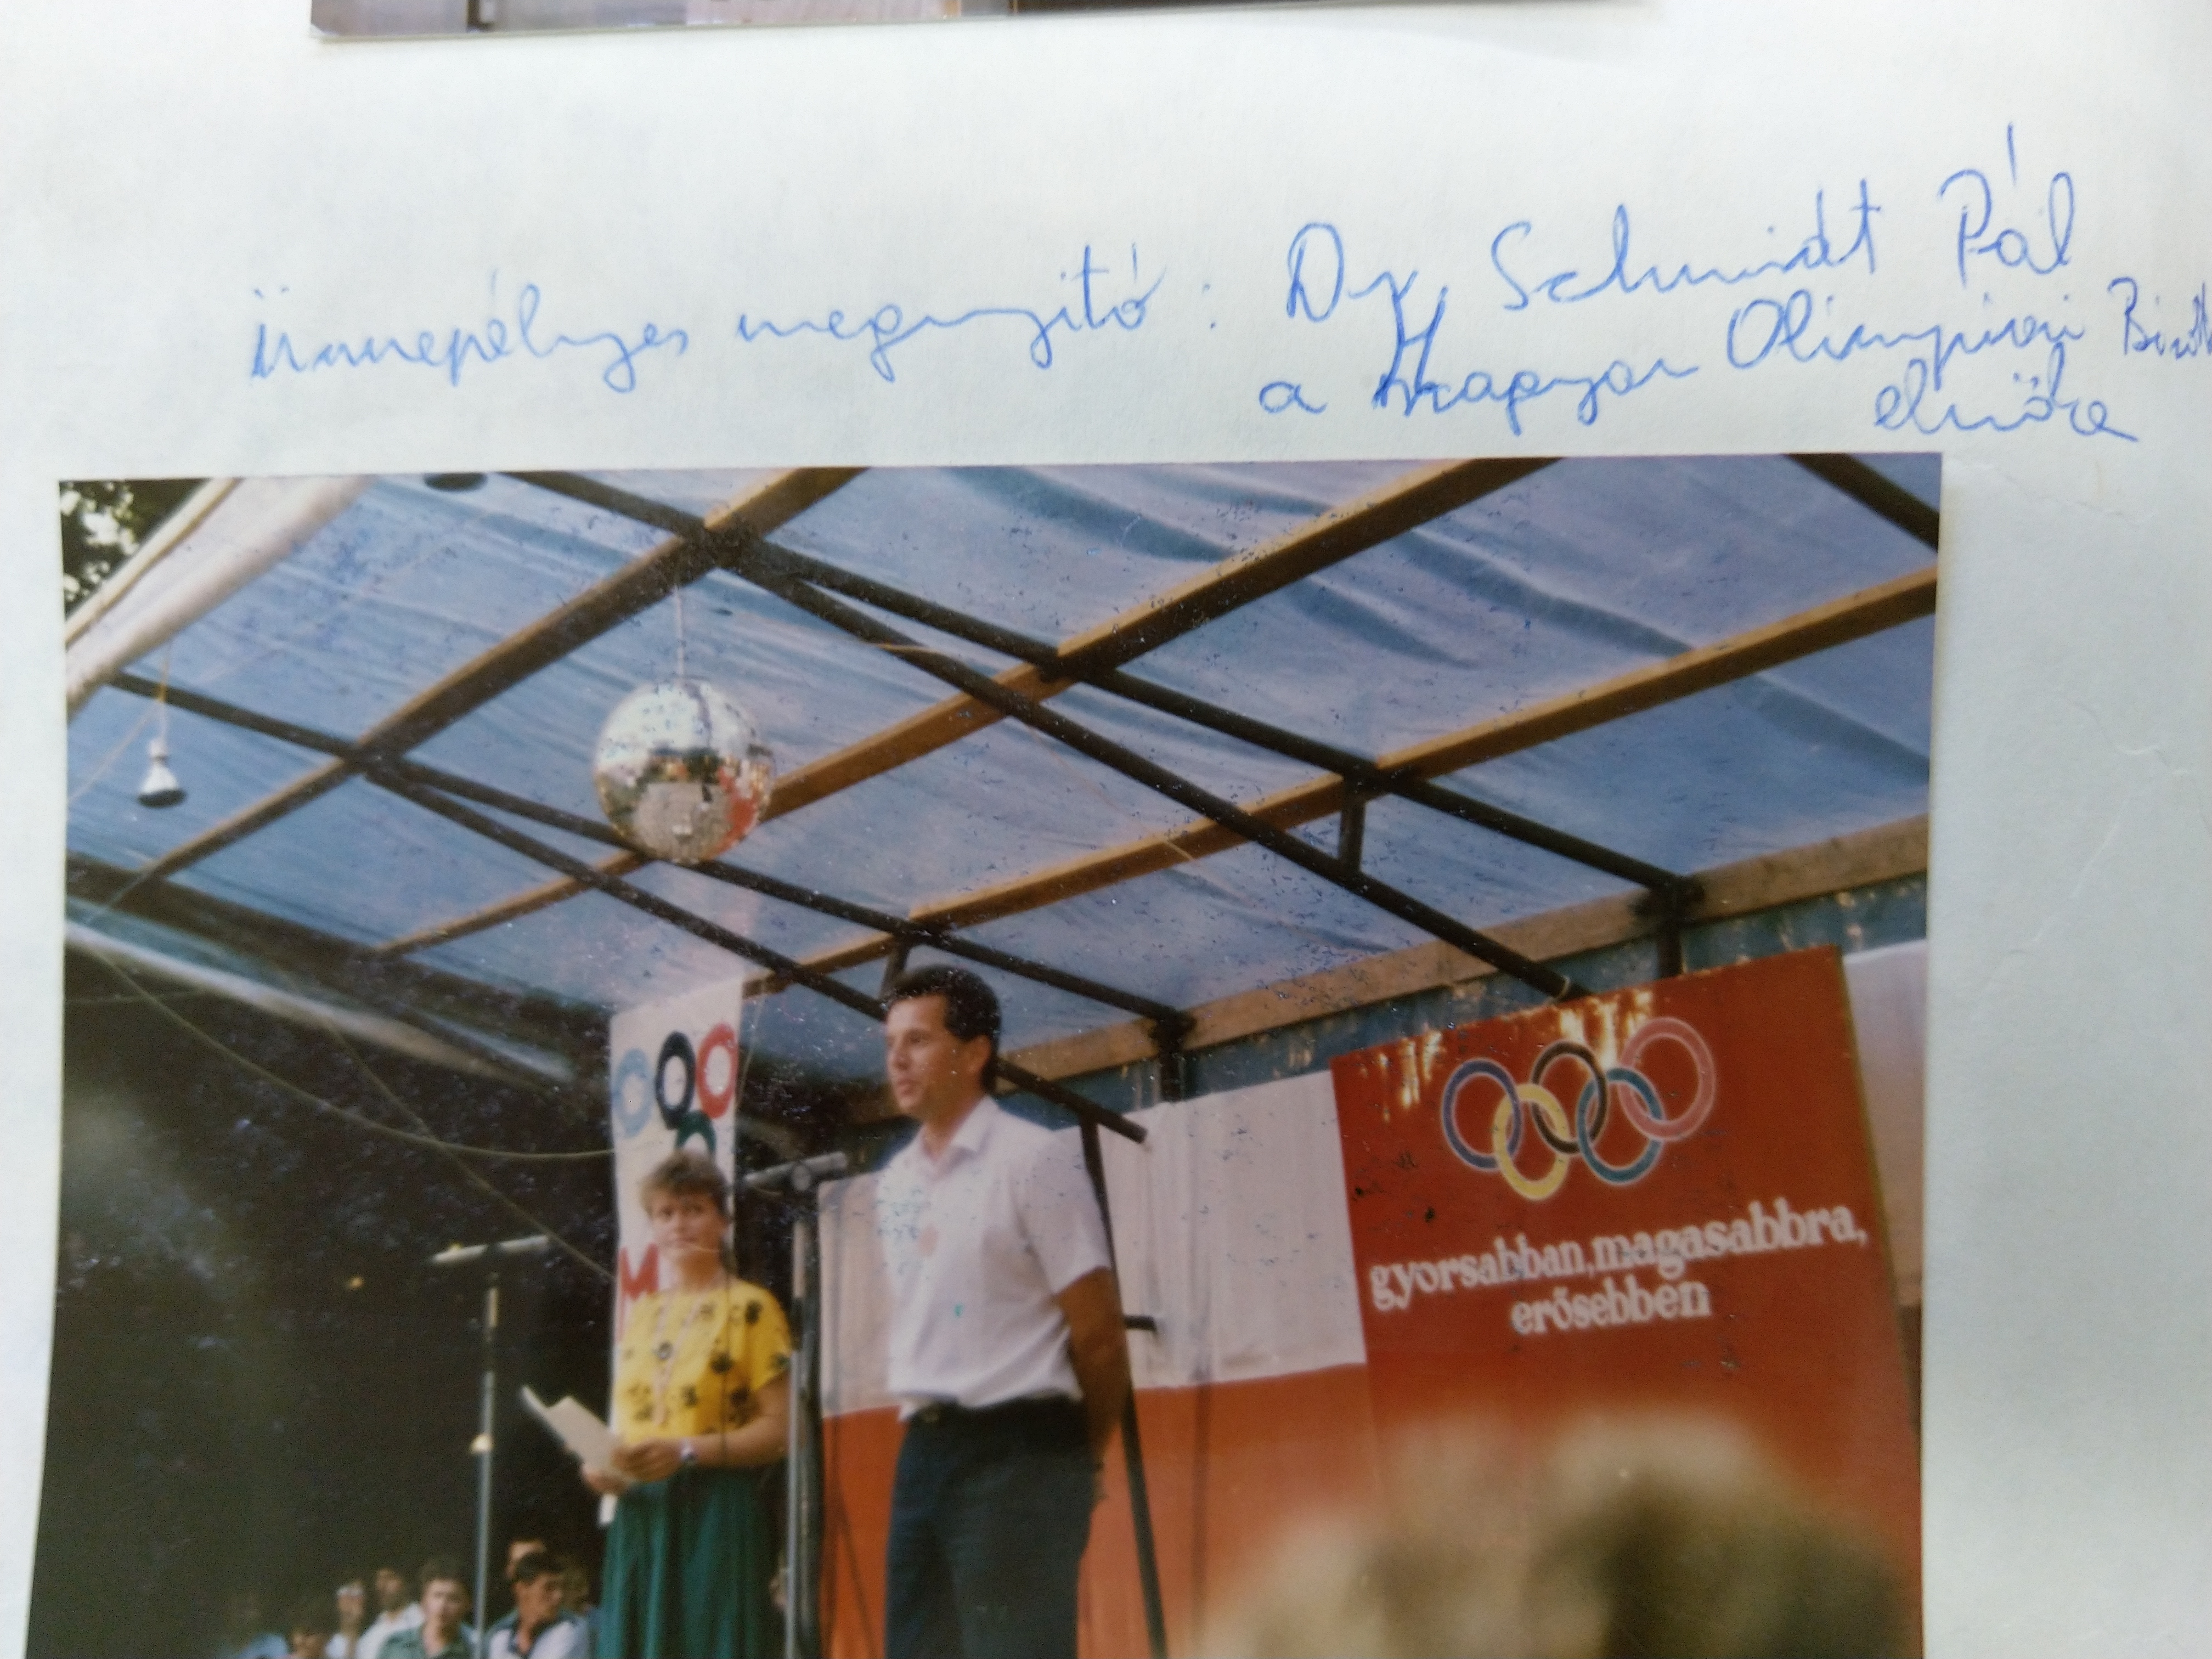 Ünnepélyes megnyitó: Dr. Schmidt Pál
a Magyar Olimpiai
elnöke
M
gyorsabban, magasabbra,
erősebben